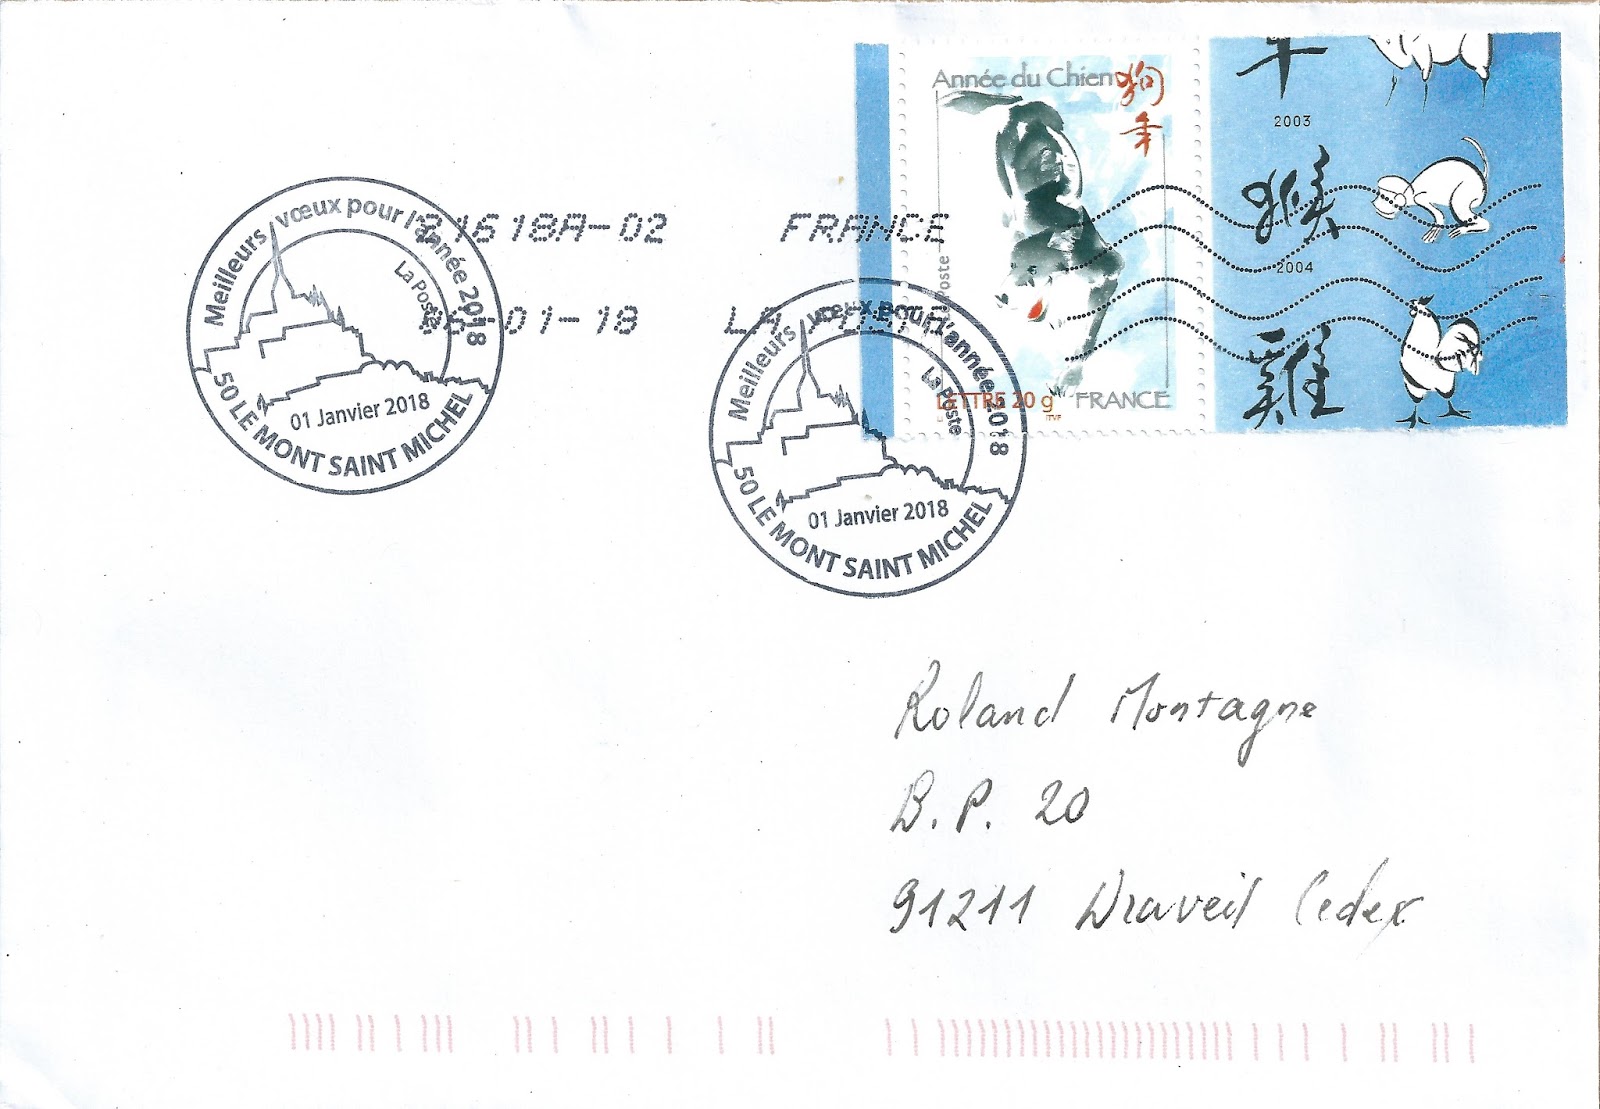 Année du Chien
狗
年
羊
2003
猴
2004
雞
Poste
LETTRE 20 g
ITVF
FRANCE
21618A-02 FRANCE
01-18 LA POSTE
Meilleurs vœux pour l'année 2018
La Poste
01 Janvier 2018
50 LE MONT SAINT MICHEL
Meilleurs vœux pour l'année 2018
La Poste
01 Janvier 2018
50 LE MONT SAINT MICHEL
Roland Montagne
B.P. 20
91211 Draveil Cedex